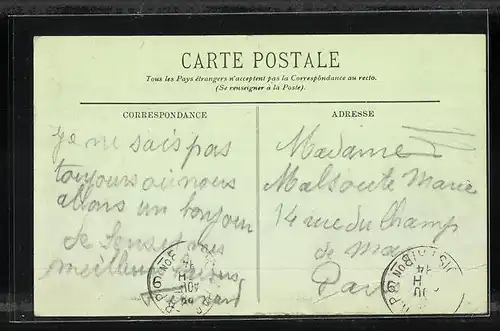 CARTE POSTALE
Tous les Pays étrangers n'acceptent pas la Correspondance au recto.
(Se renseigner à la Poste).
CORRESPONDANCE
Je ne sais pas
toujours où nous
allons un bonjour
de
meilleur
ADRESSE
Madame
Malsoute Marie
14 rue du Champ
de Mars
Paris